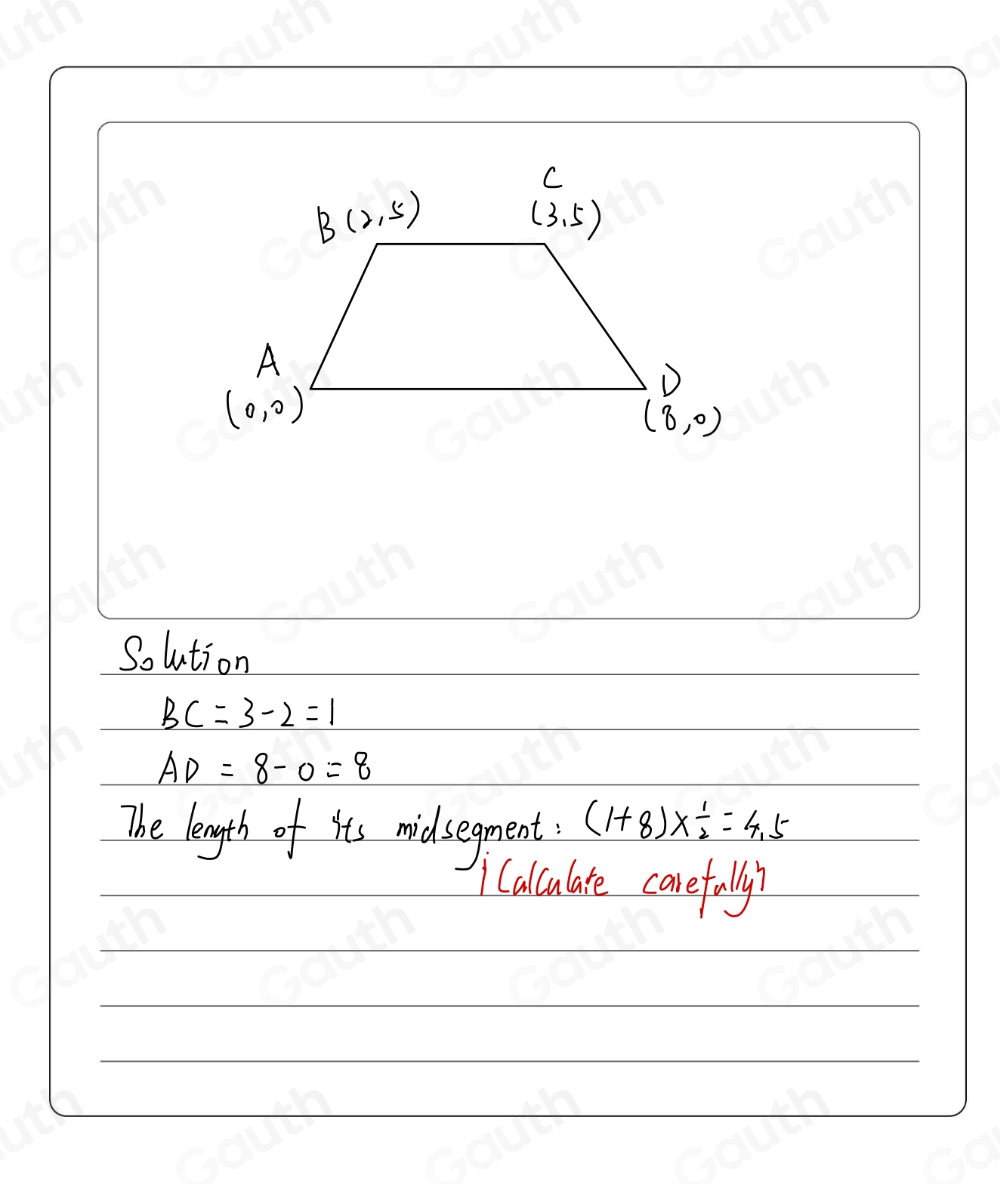 C
B (2,5)
(3.5)
A
D
(0,0)
(8,0)
Solution
BC = 3-2 = 1
AD = 8-0 = 8
The length of its midsegment: (1+8)×½ = 4.5
Calculate carefully
Gauth